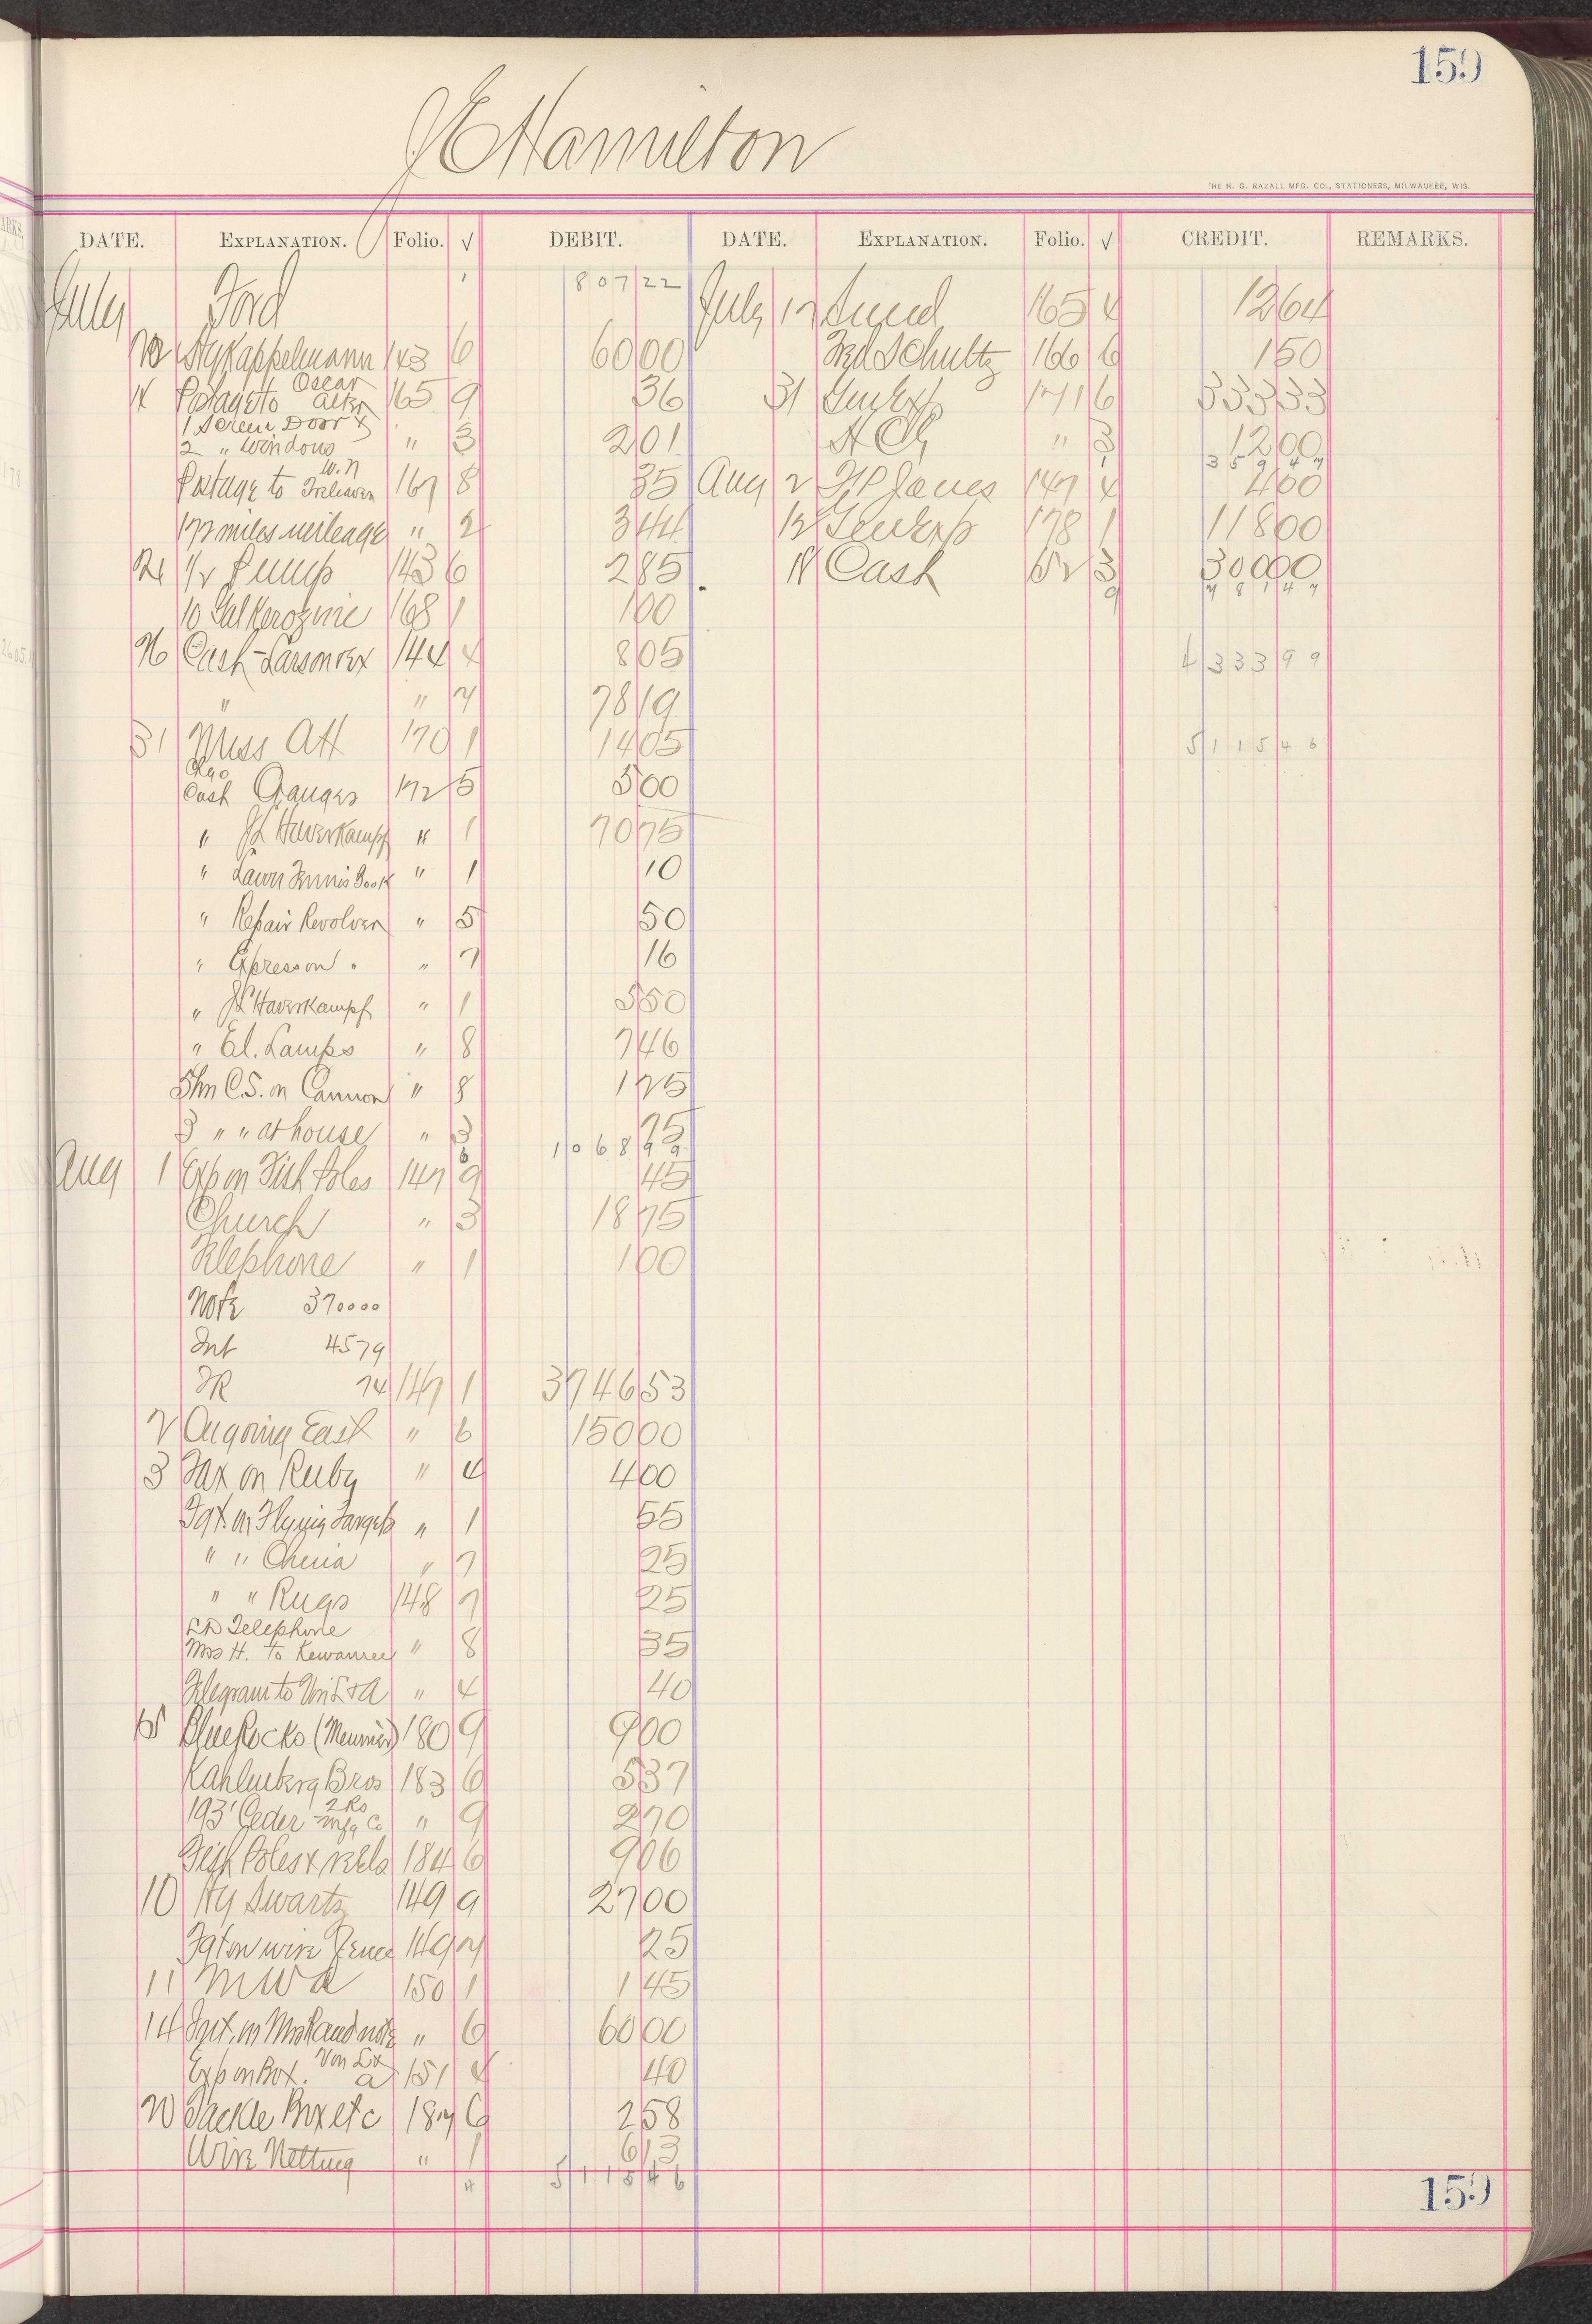 159
J E Hamilton
THE H. G. RAZALL MFG. CO., STATIONERS, MILWAUKEE, WIS.
DATE. EXPLANATION. Folio. √ DEBIT. DATE. EXPLANATION. Folio. √ CREDIT. REMARKS.
July Ford 807 22 July 12 165 4 12 64
Hy Kappelmann 143 6 60 00 Schultz 166 6 1 50
Oscar
Postage to 165 9 36 31 171 6 333 33
1 Screen Door &
2 " Windows " 3 2 01 " 3 12 00
W. N 359 47
Postage to 167 8 35 Aug 2 Jones 147 4 4 00
172 miles mileage " 2 3 44 12 178 1 118 00
24 1/2 Pump 143 6 2 85 18 Cash 152 3 300 00
781 47
10 Gal Kerozine 168 1 1 00
26 Cash 144 4 8 05 4333 99
" " 7 78 19
31 Miss Att 170 1 14 05 5115 46
Cash Gauges 172 5 5 00
" Haverkampf " 1 70 75
" Lawn Tennis Book " 1 10
" Repair Revolver " 5 50
" Express on " " 7 16
" Haverkampf " 1 5 50
" El. Lamps " 8 7 46
C.S. on Cannon " 8 1 75
3 " " at house " 3 75
1068 99
Aug 1 Exp on Fish Poles 147 9 45
Church " 3 18 75
Telephone " 1 1 00
Note 370000
Int 4579
74 147 1 3746 53
2 On going East " 6 150 00
3 Tax on Ruby " 4 4 00
Fgt. on Flying Targets " 1 55
" " China " 7 25
" " Rugs 148 7 25
LD Telephone
Mrs H. to Kewaunee " 8 35
Telegram to " 4 40
Blue Rocks (Meunier) 180 9 9 00
Kahlenberg Bros 183 6 5 37
2 Rs
193' Ceder Mfg Co " 9 2 70
Fish Poles & Reels 184 6 9 06
10 Hy Swartz 149 9 27 00
Fgt on wire Fence 149 7 25
11 M W A 150 1 1 45
14 Int. on note " 6 60 00
Exp on Box. 151 4 40
20 Tackle Box etc 187 6 2 58
Wire Netting " 1 6 13
5115 46
159